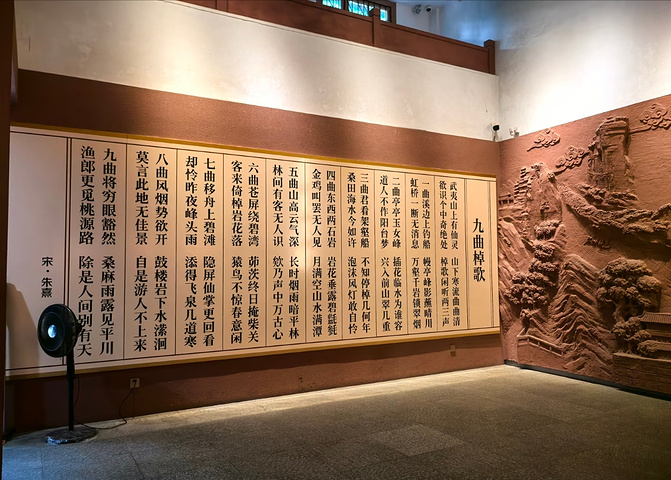 九曲棹歌
武夷山上有仙灵 山下寒流曲曲清
欲识个中奇绝处 棹歌闲听两三声
一曲溪边上钓船 幔亭峰影蘸晴川
虹桥一断无消息 万壑千岩锁翠烟
二曲亭亭玉女峰 插花临水为谁容
道人不作阳台梦 兴入前山翠几重
三曲君看架壑船 不知停棹几何年
桑田海水今如许 泡沫风灯敢自怜
四曲东西两石岩 岩花垂露碧㲯毵
金鸡叫罢无人见 月满空山水满潭
五曲山高云气深 长时烟雨暗平林
林间有客无人识 欸乃声中万古心
六曲苍屏绕碧湾 茆茨终日掩柴关
客来倚棹岩花落 猿鸟不惊春意闲
七曲移舟上碧滩 隐屏仙掌更回看
却怜昨夜峰头雨 添得飞泉几道寒
八曲风烟势欲开 鼓楼岩下水潆洄
莫言此地无佳景 自是游人不上来
九曲将穷眼豁然 桑麻雨露见平川
渔郎更觅桃源路 除是人间别有天
宋·朱熹